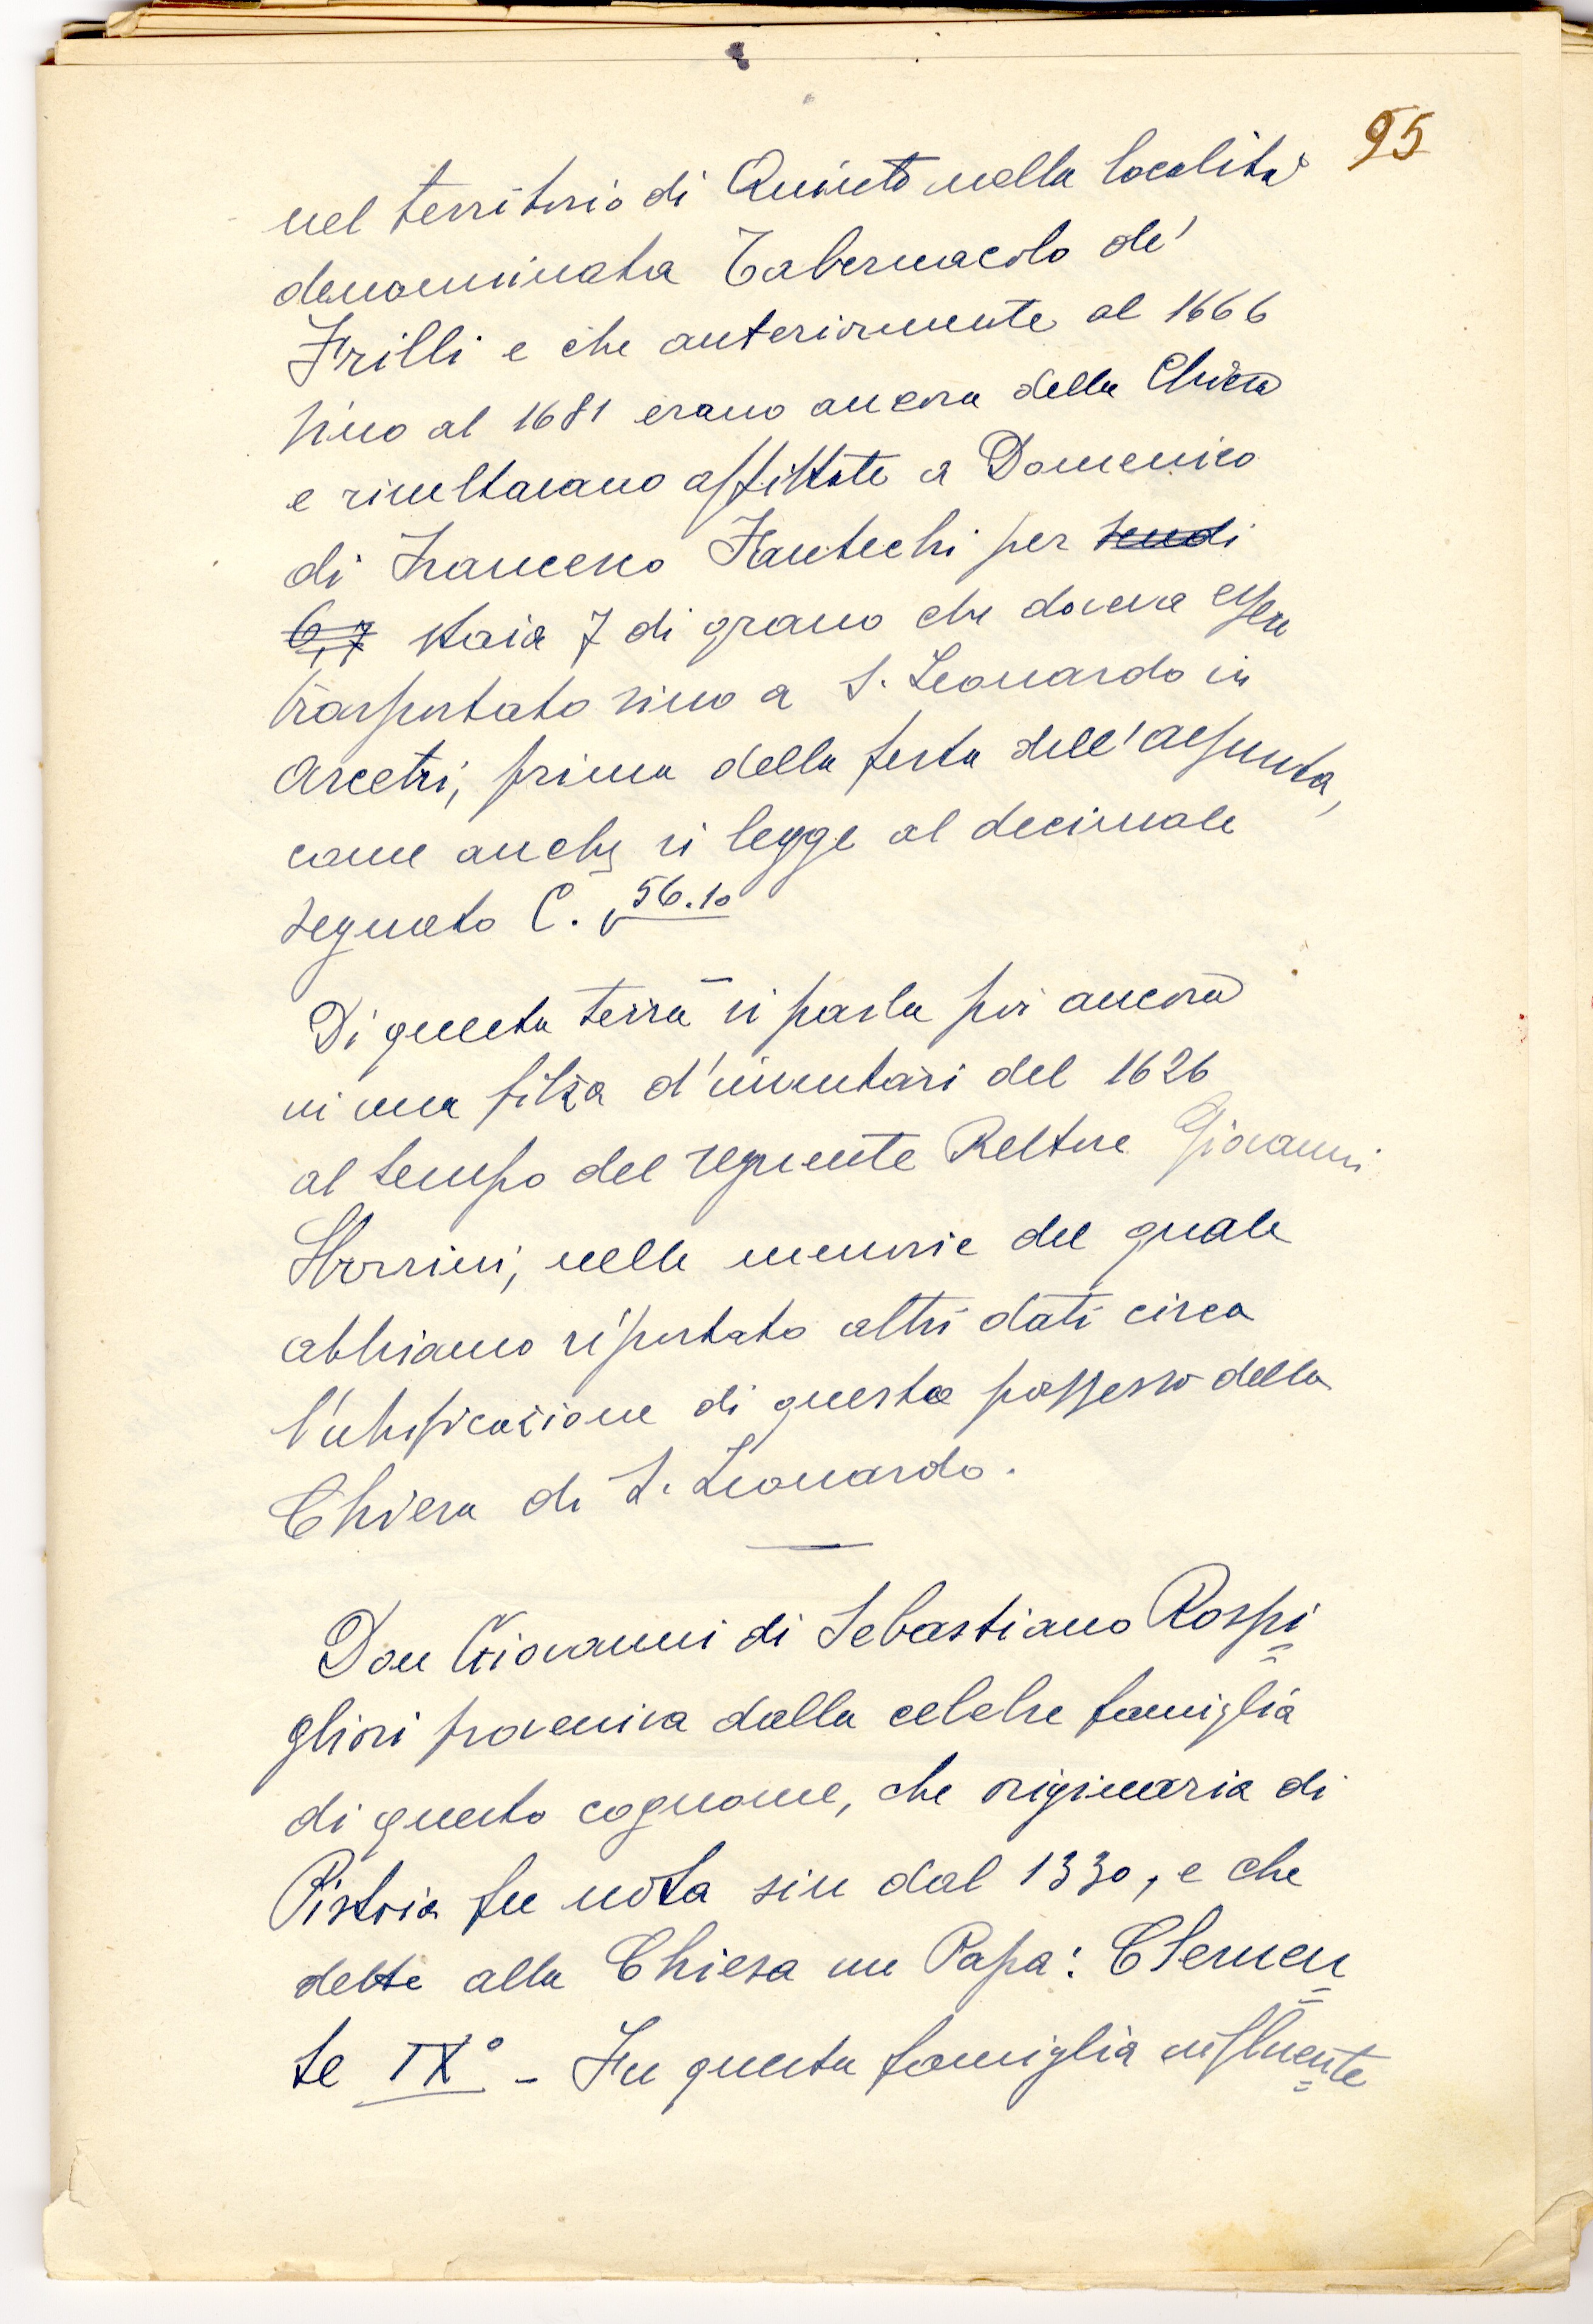 95
nel territorio di Quinto nella località
denominata Tabernacolo de'
Frilli e che anteriormente al 1666
fino al 1681 erano ancora della Chiesa
e risultavano affittate a Domenico
di Francesco Fantechi per scudi
6,7 staia 7 di grano che doveva essere
trasportato sino a S. Leonardo in
Arcetri, prima della festa dell'Assunta,
come anche si legge al decimale
segnato C. 56.10
Di questa terra si parla poi ancora
in una filza d'inventari del 1626
al tempo del seguente Rettore Giovanni
nelle memorie del quale
abbiamo riportato altri dati circa
l'ubificazione di questo possesso della
Chiesa di S. Leonardo.
Don Giovanni di Sebastiano Rospi
gliosi proveniva dalla celebre famiglia
di questo cognome, che originaria di
Pistoia fu nota sin dal 1330, e che
dette alla Chiesa un Papa: Clemen
te IX° - Fu questa famiglia influente